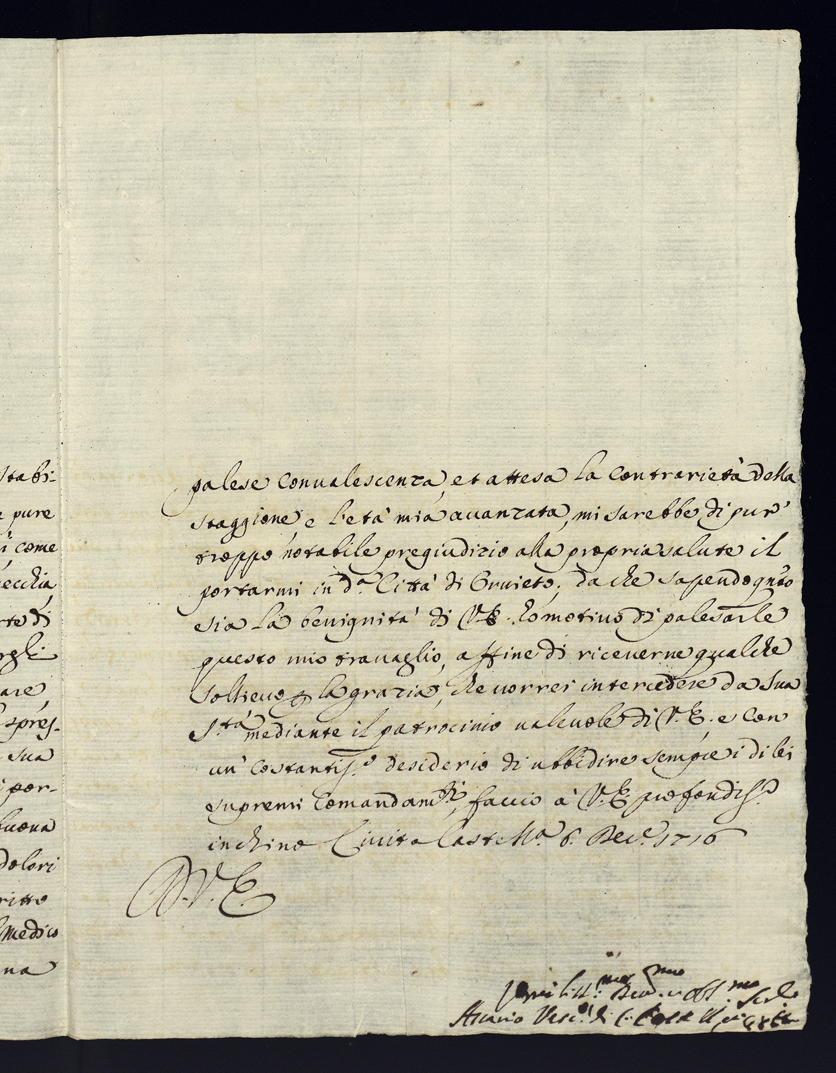 stabi:
e pure
come
ecchia
rte di
egli
are
spres-
sua
por-
buona
dolori
ritto
Medico
na
palese convalescenza, et attesa la contrarietà della
staggione, e l'età mia avanzata, mi sarebbe di pur
troppo notabile pregiudizio alla propria salute il
portarmi in d.ª Città di Orvieto; da che sapendo q̃nto
sia la benignità di V.E. ho motivo di palesarle
questo mio travaglio, affine di riceverne qualche
sollievo p la grazia, che vorrei intercedere da Sua
S.tà mediante il patrocinio valevole di V.E. e con
un' costantiss.º desiderio di ubbidire sempre i di lei
supremi Comandam.ti, faccio à V.E. profondiss.º
inchino Civita Castell.ª 6. Dec.e 1716
D.V.E.
Vmiliss.mo Dev.mo et Obl.mo Ser.e
Vesc.º di C. Cast.